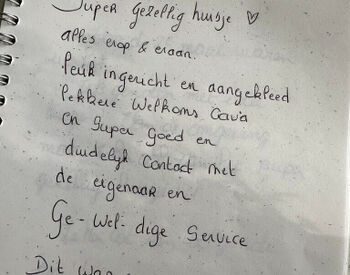 Super gezellig huisje ♡
alles erop & eraan.
leuk ingericht en aangekleed
lekkere Welkoms Cava
en super goed en
duidelijk contact met
de eigenaar en
Ge-wel-dige service
Dit was